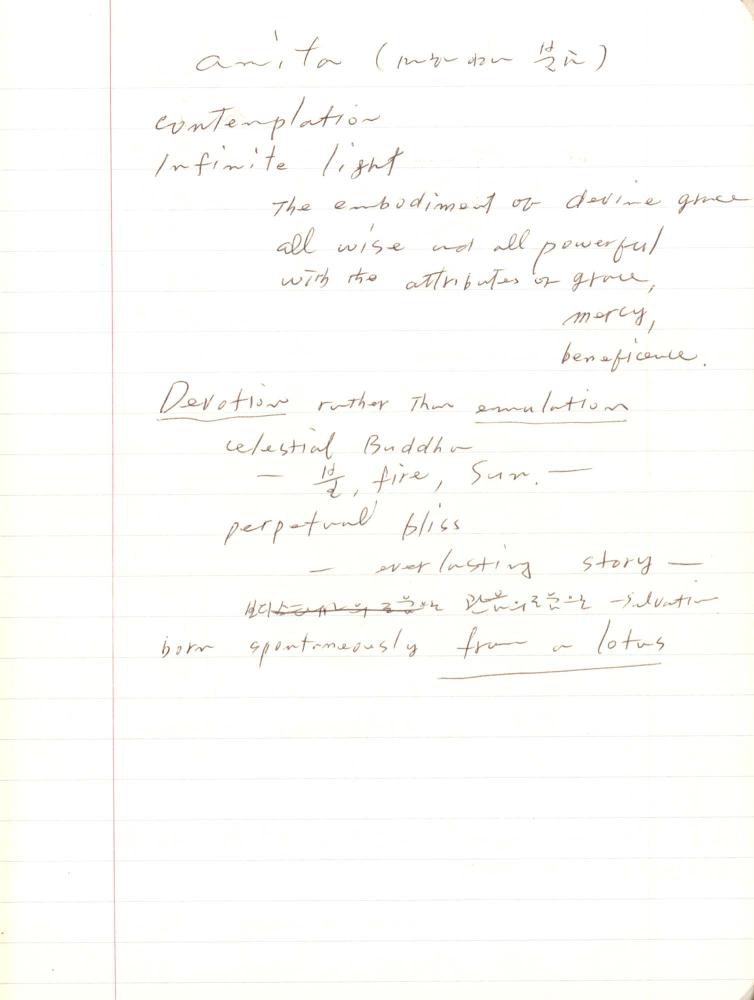 amita (
contemplation
Infinite light
The embodiment of devine grace
all wise and all powerful
with the attributes of grace,
mercy,
beneficence.
Devotion rather than emulation
celestial Buddha
— 불, fire, Sun. —
perpetual bliss
— everlasting story —
salvation
born spontaneously from a lotus